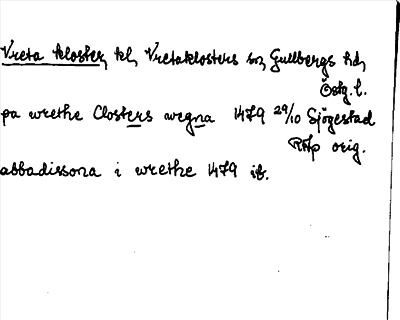 Vreta kloster, kl, Vretaklosters sn, Gullbergs hd,
Östg.l.
pa wrethe Closters wegna 1479 29/10 Sjögestad
RAp orig.
abbadissona i wrethe 1479 ib.